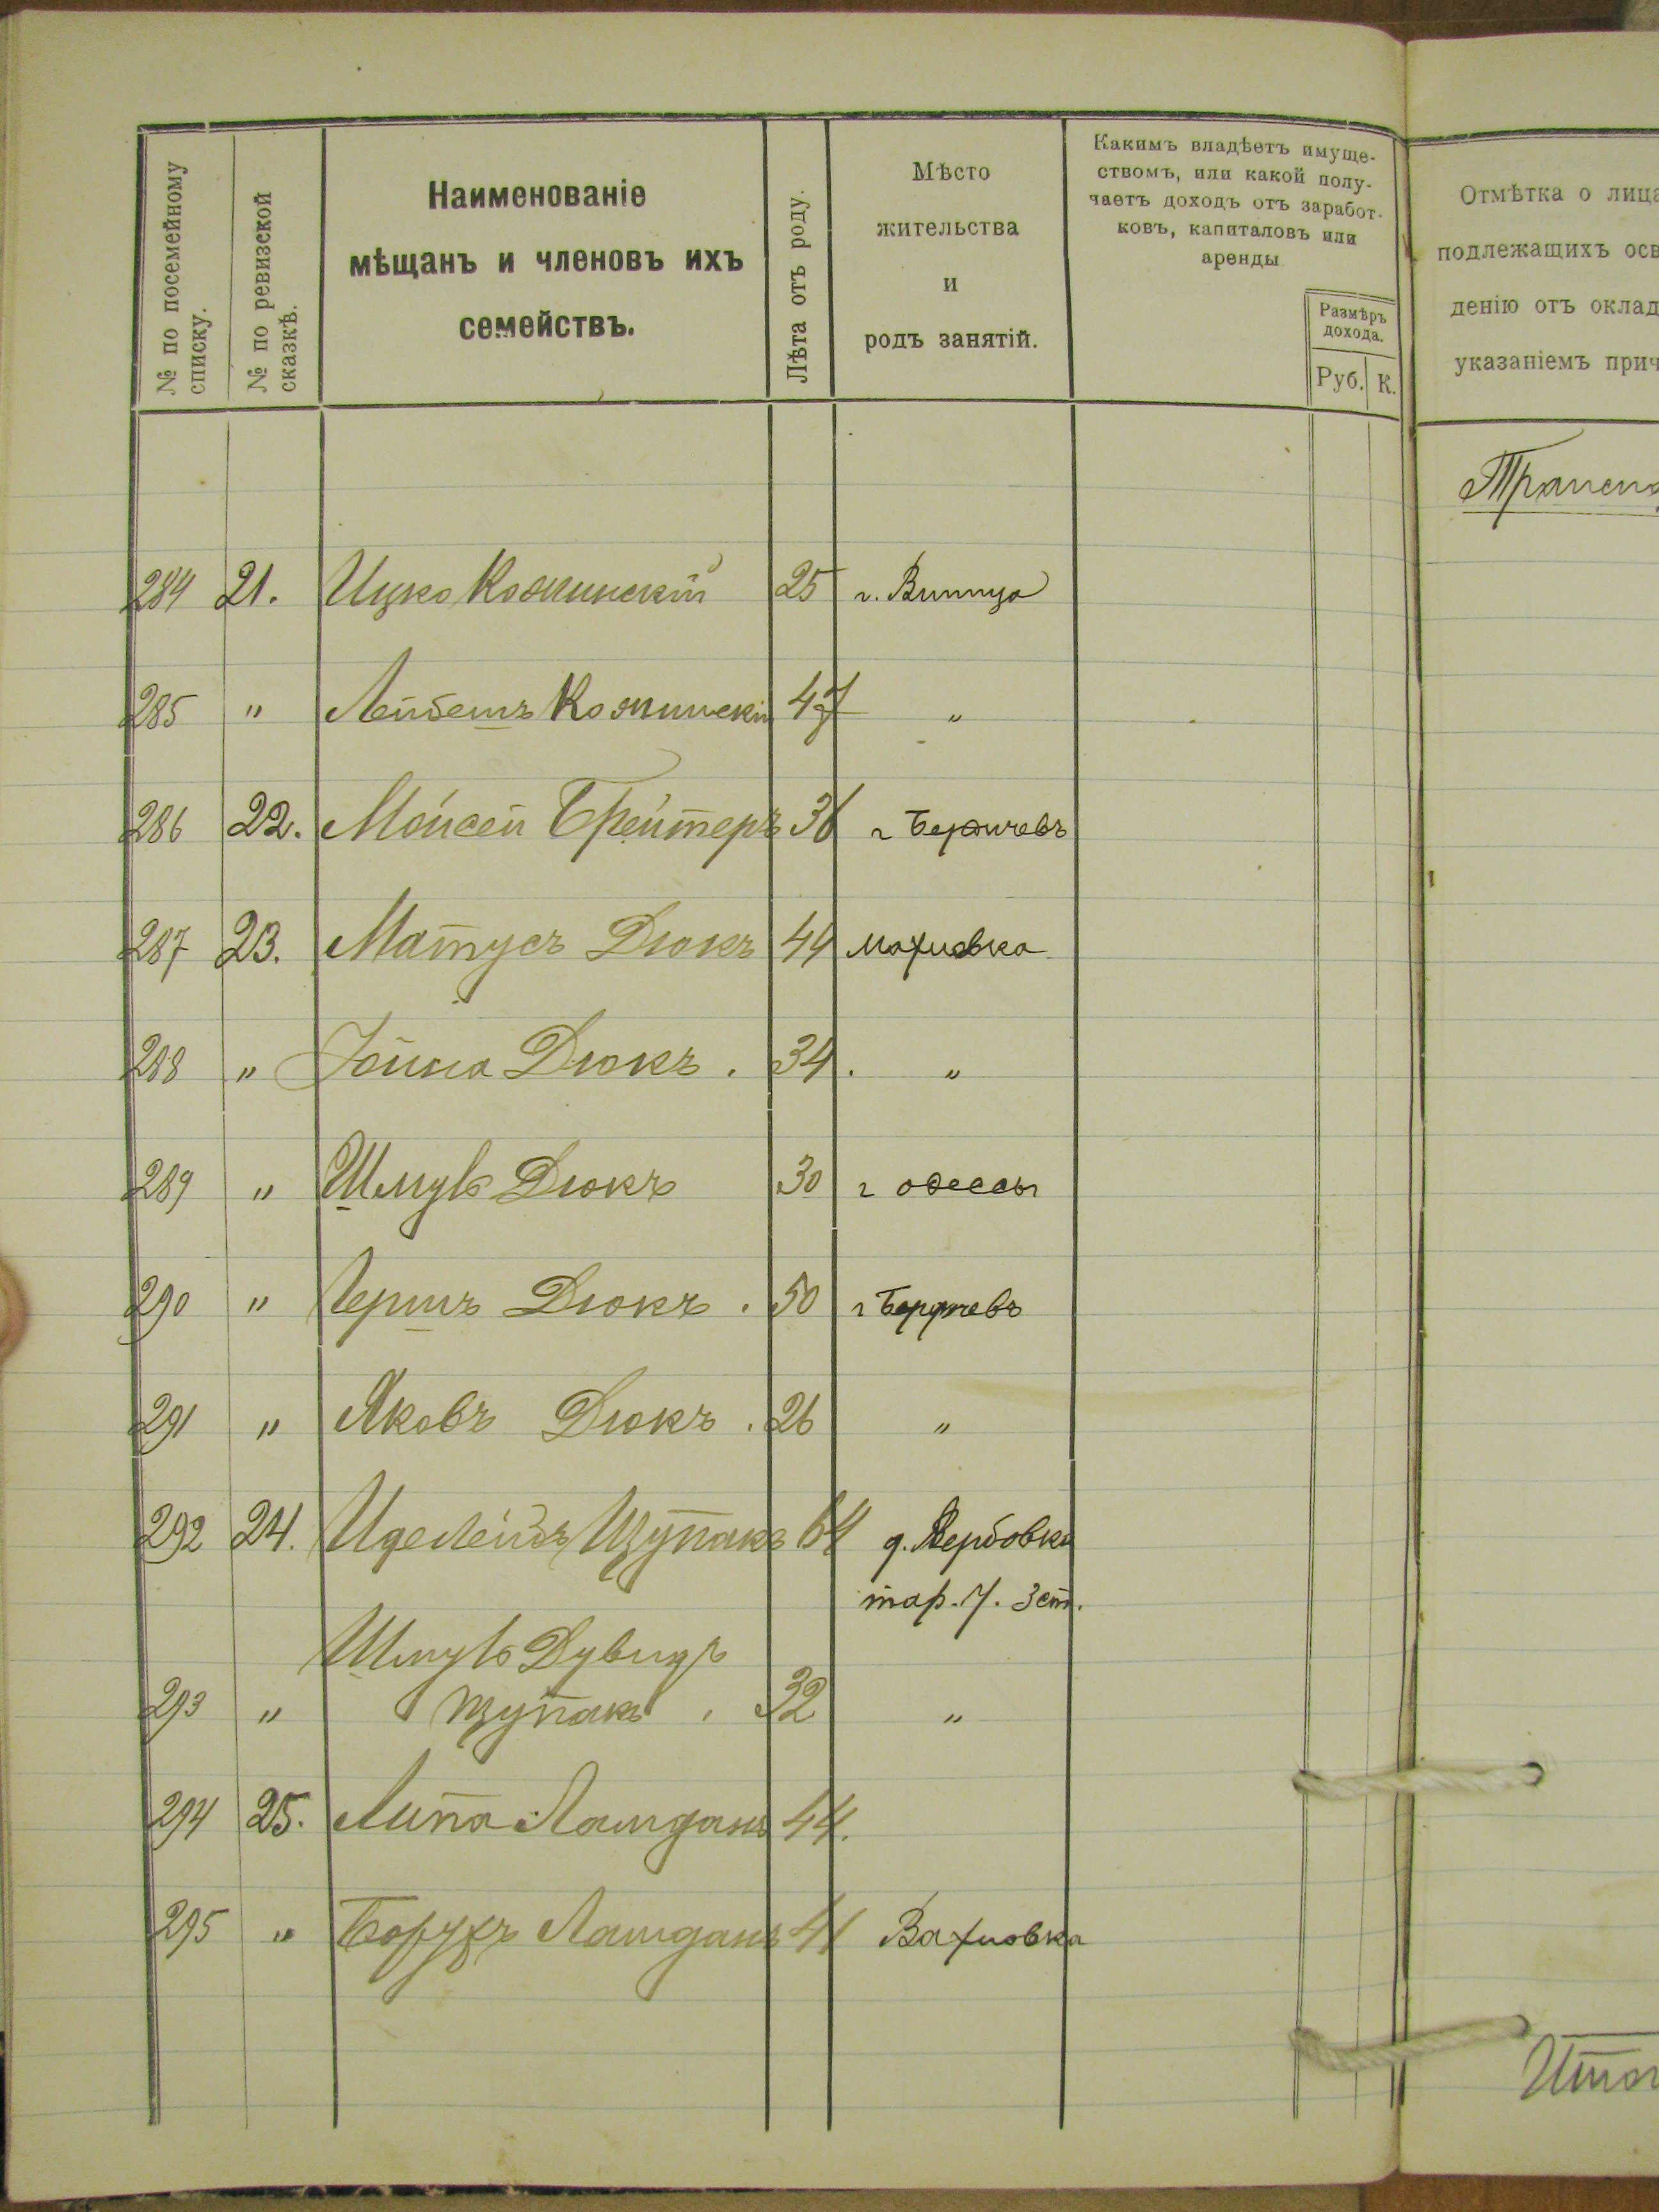 № по посемейному списку.
№ по ревизской сказкѣ.
Наименованіе
мѣщанъ и членовъ ихъ
семействъ.
Лѣта отъ роду.
Мѣсто
жительства
и
родъ занятій.
Какимъ владѣетъ имуще-
ствомъ, или какой полу-
чаетъ доходъ отъ заработ-
ковъ, капиталовъ или
аренды
Размѣръ
дохода.
Руб. К.
Отмѣтка о лица
подлежащихъ осв
денію отъ оклад
указаніемъ прич
284 21. Ицко Кожинскій 25 г. Винница
285 " Лейбешъ Кожинскій 47 "
286 22. Мойсей Брейтеръ 36 г Бердичевъ
287 23. Матусъ Дюкъ 44 Махновка
288 " Іойна Дюкъ. 34. "
289 " Шмуль Дюкъ 30 г Одессы
290 " Гершъ Дюкъ. 50 г Бердичевъ
291 " Яковъ Дюкъ. 26 "
292 24. Щупакъ 64 д. Вербовка
3 ст.
Шмуль Дувидъ
293 " Щупакъ. 32 "
294 25. Липа Ламданъ 44.
295 " Борухъ Ламданъ 41 Вахновка
Итог